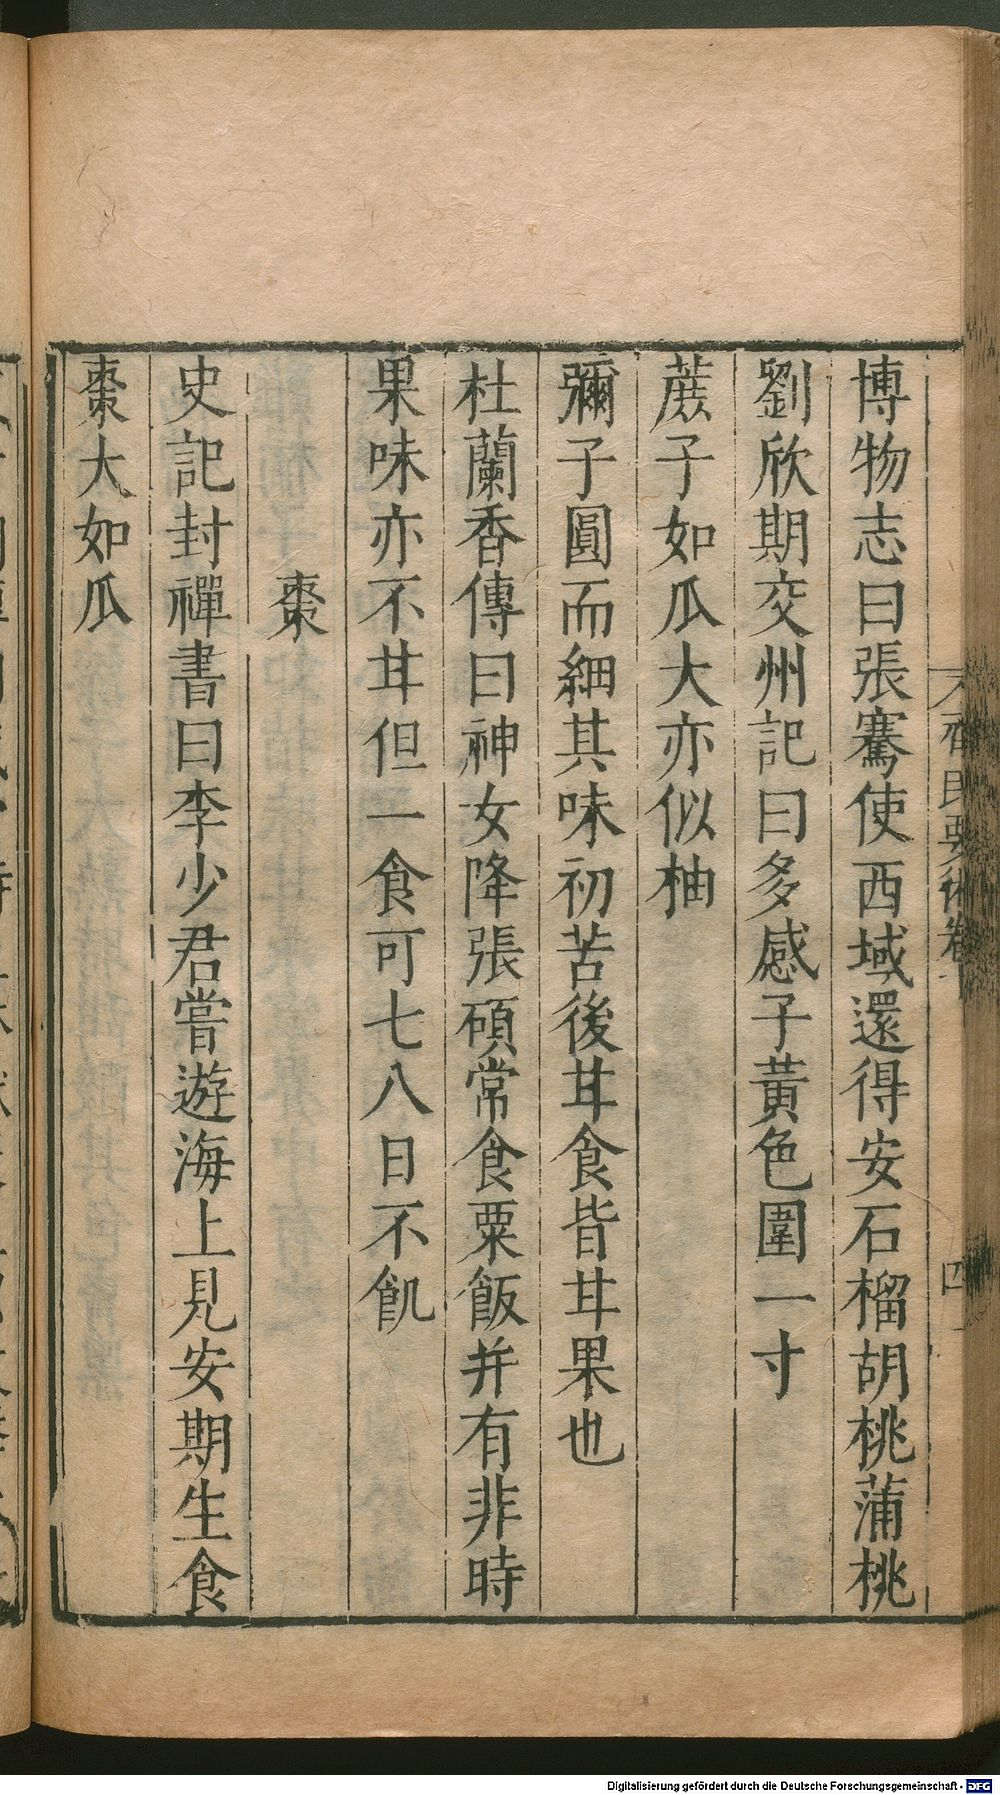 博物志曰張騫使西域還得安石榴胡桃蒲桃
劉欣期交州記曰多感子黃色圍一寸
蔗子如瓜大亦似柚
彌子圓而細其味初苦後甘食皆甘果也
杜蘭香傳曰神女降張碩常食粟飯并有非時
果味亦不甘但一食可七八日不飢
棗
史記封禪書曰李少君嘗遊海上見安期生食
棗大如瓜
齊民要術卷十
四
Digitalisierung gefördert durch die Deutsche Forschungsgemeinschaft - DFG